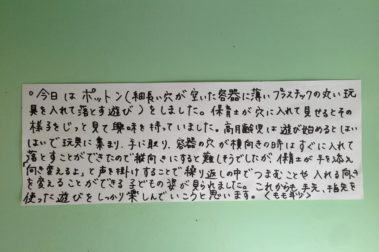 ○今日はポットン(細長い穴が空いた容器に薄いプラスチックの丸い玩
具を入れて落とす遊び)をしました。保育士が穴に入れて見せるとその
様子をじっと見て興味を持っていました。高月齢児は遊び始めるとはい
はいで玩具に集まり、手に取り、容器の穴が横向きの時はすぐに入れて
落とすことができたので縦向きにすると難しそうでしたが保育士が手を添え
「向き変えるよ」と声を掛けすることで繰り返しの中でつまむことや入れる向き
を変えることができる子どもの姿が見られました。これからも手先、指先を
使った遊びをしっかり楽しんでいこうと思います。〈ももぐみ〉